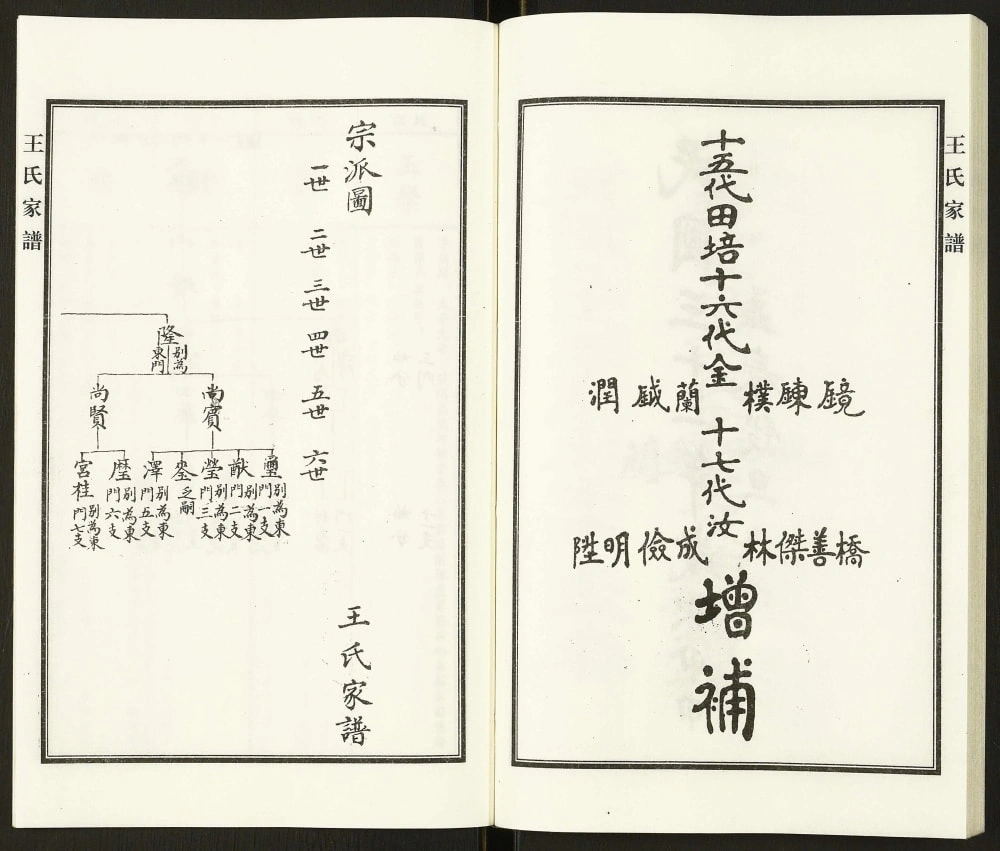 王氏家譜
十五代田培十六代金
鏡鍊樸蘭鉞潤
十七代汝
橋善傑林成儉明陞
增補
王氏家譜
宗派圖
王氏家譜
一世
二世
三世
四世
五世
六世
隆
別為東門
尚賓
尚賢
璽
別為東門一支
猷
別為東門二支
瑩
別為東門三支
乏嗣
澤
別為東門五支
別為東門六支
宮桂
別為東門七支